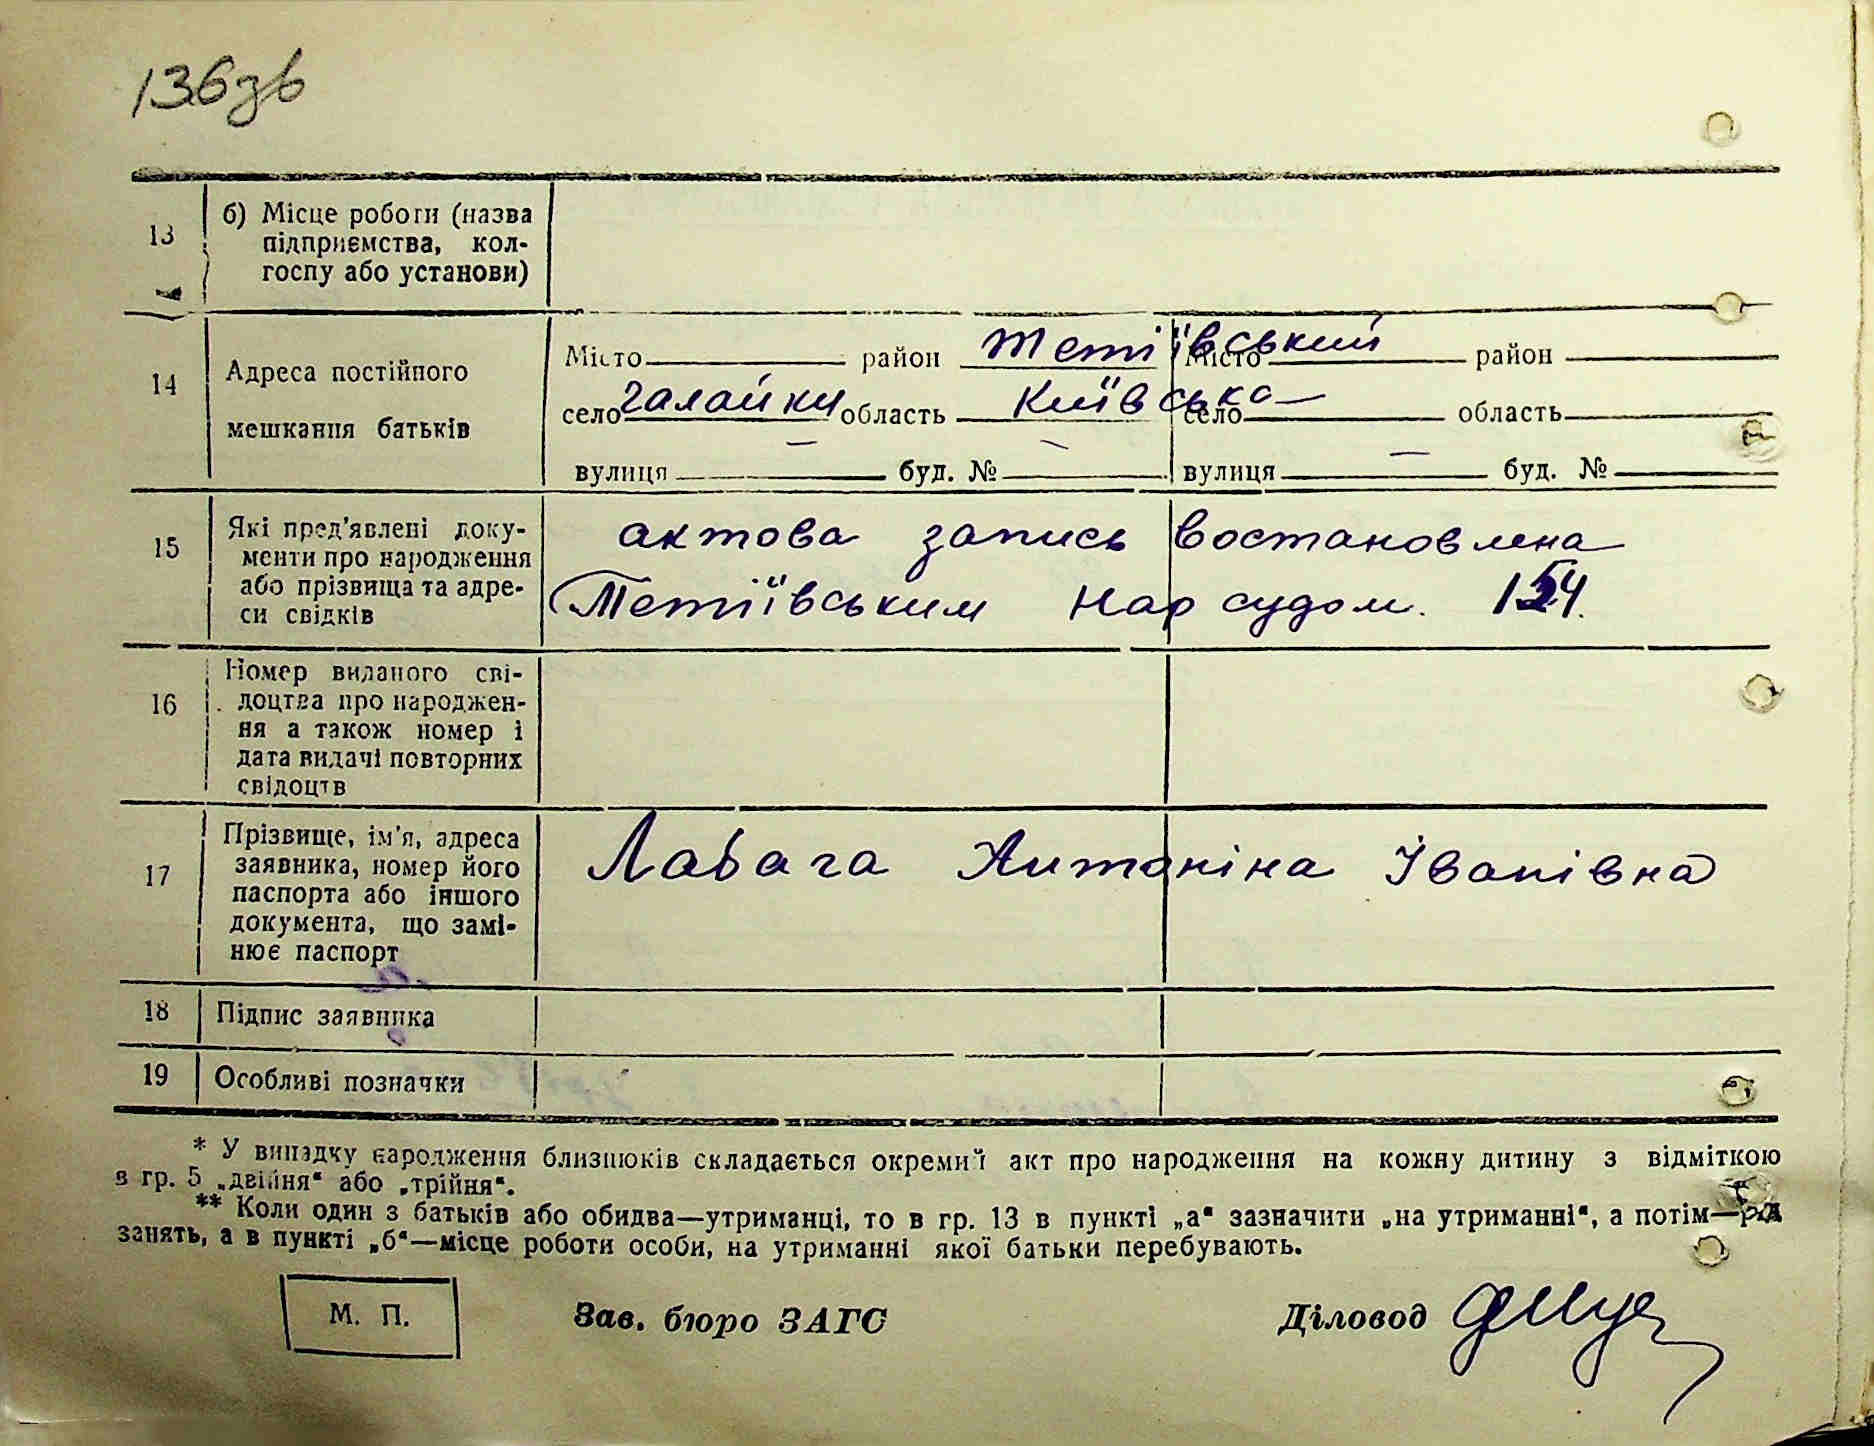 136зв
13 б) Місце роботи (назва
підприємства, кол-
госпу або установи)
14 Адреса постійного
мешкання батьків
Місто район Тетіївський Місто район
село Галайки область Київська село область
вулиця — буд. № — вулиця — буд. №
15 Які пред'явлені доку-
менти про народження
або прізвища та адре-
си свідків
актова запись востановлена
Тетіївським Нар судом.
16 Номер виданого сві-
доцтва про народжен-
ня а також номер і
дата видачі повторних
свідоцтв
17 Прізвище, ім'я, адреса
заявника, номер його
паспорта або іншого
документа, що замі-
нює паспорт
Лабага Антоніна Іванівна
18 Підпис заявника
19 Особливі позначки
* У випадку народження близнюків складається окремий акт про народження на кожну дитину з відміткою
в гр. 5 „двійня“ або „трійня“.
** Коли один з батьків або обидва—утриманці, то в гр. 13 в пункті „а“ зазначити „на утриманні“, а потім—рід
занять, а в пункті „б“—місце роботи особи, на утриманні якої батьки перебувають.
М. П. Зав. бюро ЗАГС Діловод